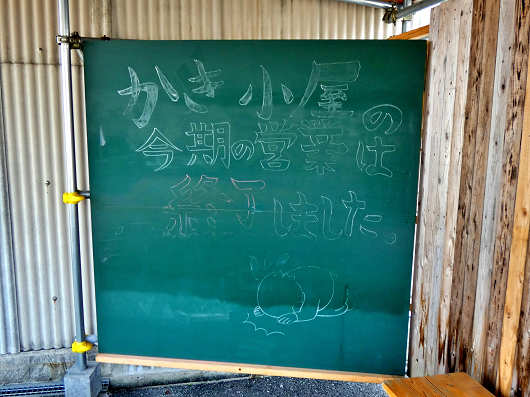 かき小屋の
今期の営業は
終了しました。